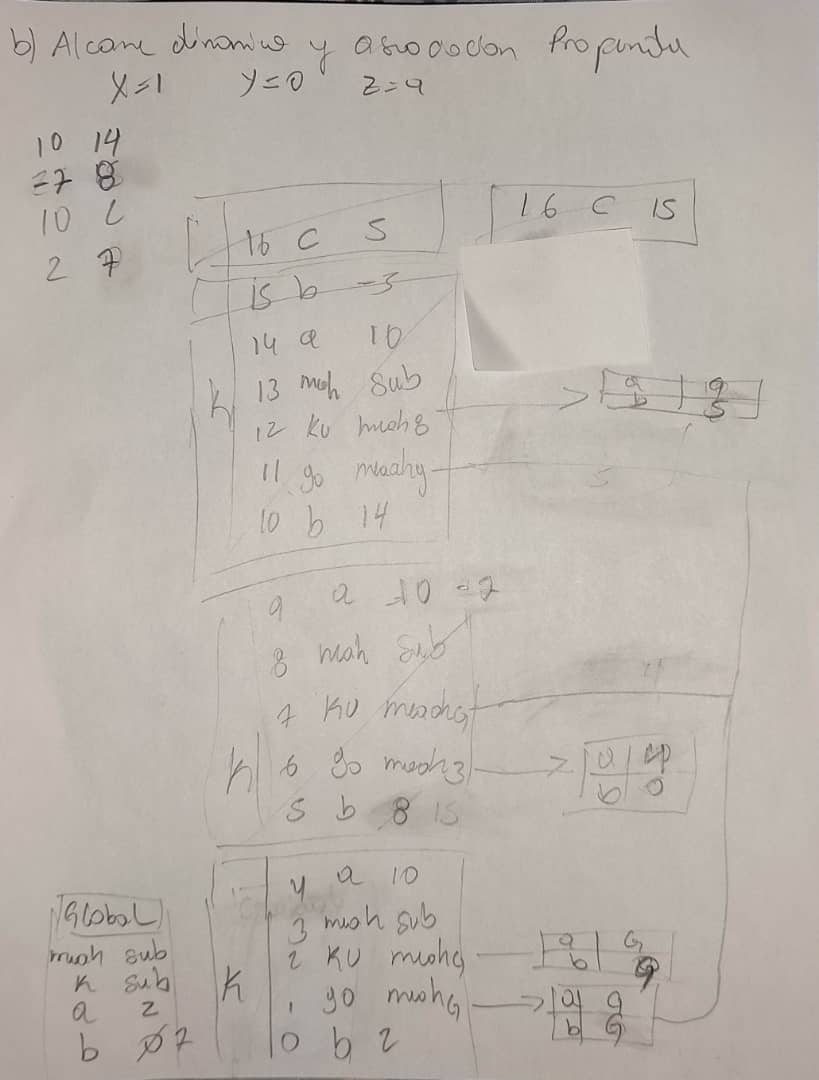 b) Alcance dinamico y asociacion Profunda
X=1 Y=0 Z=9
10 14
=7 8
10 C
2 7
16 C 5
16 C 15
15 b -3
14 a 10
13 meh sub
12 KU meoh8
K
11 go meoahy
10 b 14
a 9
b 5
5
9 a 10 =7
8 meah sub
7 KU meoahG
K 6 go meoh3
5 b 8 15
a
b 0
4 a 10
3 meoh sub
2 KU meohG
K
1 go mehG
0 b 2
a G
b G
a 9
b G
Global
meoh sub
K sub
a 2
b 0 7